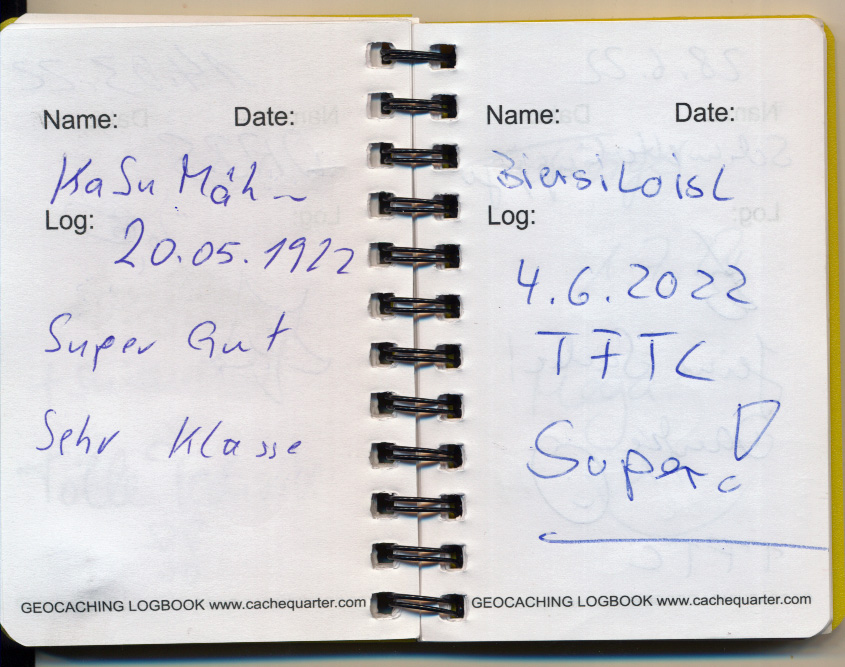 Name: Date:
KaSu Mäh
Log:
20.05.1922
Super Gut
Sehr Klasse
GEOCACHING LOGBOOK www.cachequarter.com
Name: Date:
Log:
4.6.2022
TFTC
Super!
GEOCACHING LOGBOOK www.cachequarter.com